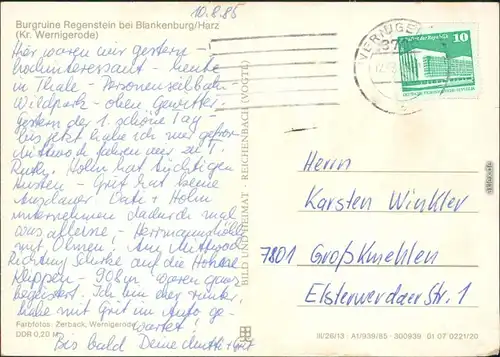 10.8.85
Burgruine Regenstein bei Blankenburg/Harz
(Kr. Wernigerode)
Hier waren wir gestern -
hochinteressant - heute
in Thale - Personenseilbahn
Wildpark - oben Gewitter
gestern der 1. schöne Tag -
bis jetzt habe ich nur gefroren
Mittwoch fahren wir zu T.
Ruth. Holm hat tüchtigen
Husten - Grit hat keine
Ausdauer Oati + Holm
unternehmen dadurch mal
was alleine - Hermannshöhle
mit Olmen! Am Mittwoch
Richtung Schierke auf die Hohne
Klippen - 908 m waren ganz
begeistert. Ich bin hier runter,
habe mit Grit im Auto ge-
wartet!
Bis bald Deine Mutti + Grit
Farbfotos: Zerback, Wernigerode
DDR 0,20 M
BILD UND HEIMAT · REICHENBACH (VOGTL)
WERNIGERODE
10
Herrn
Karsten Winkler
7801 Großkmehlen
Elsterwerdaer Str. 1
III/26/13 A1/939/85 300939 01 07 0221/20